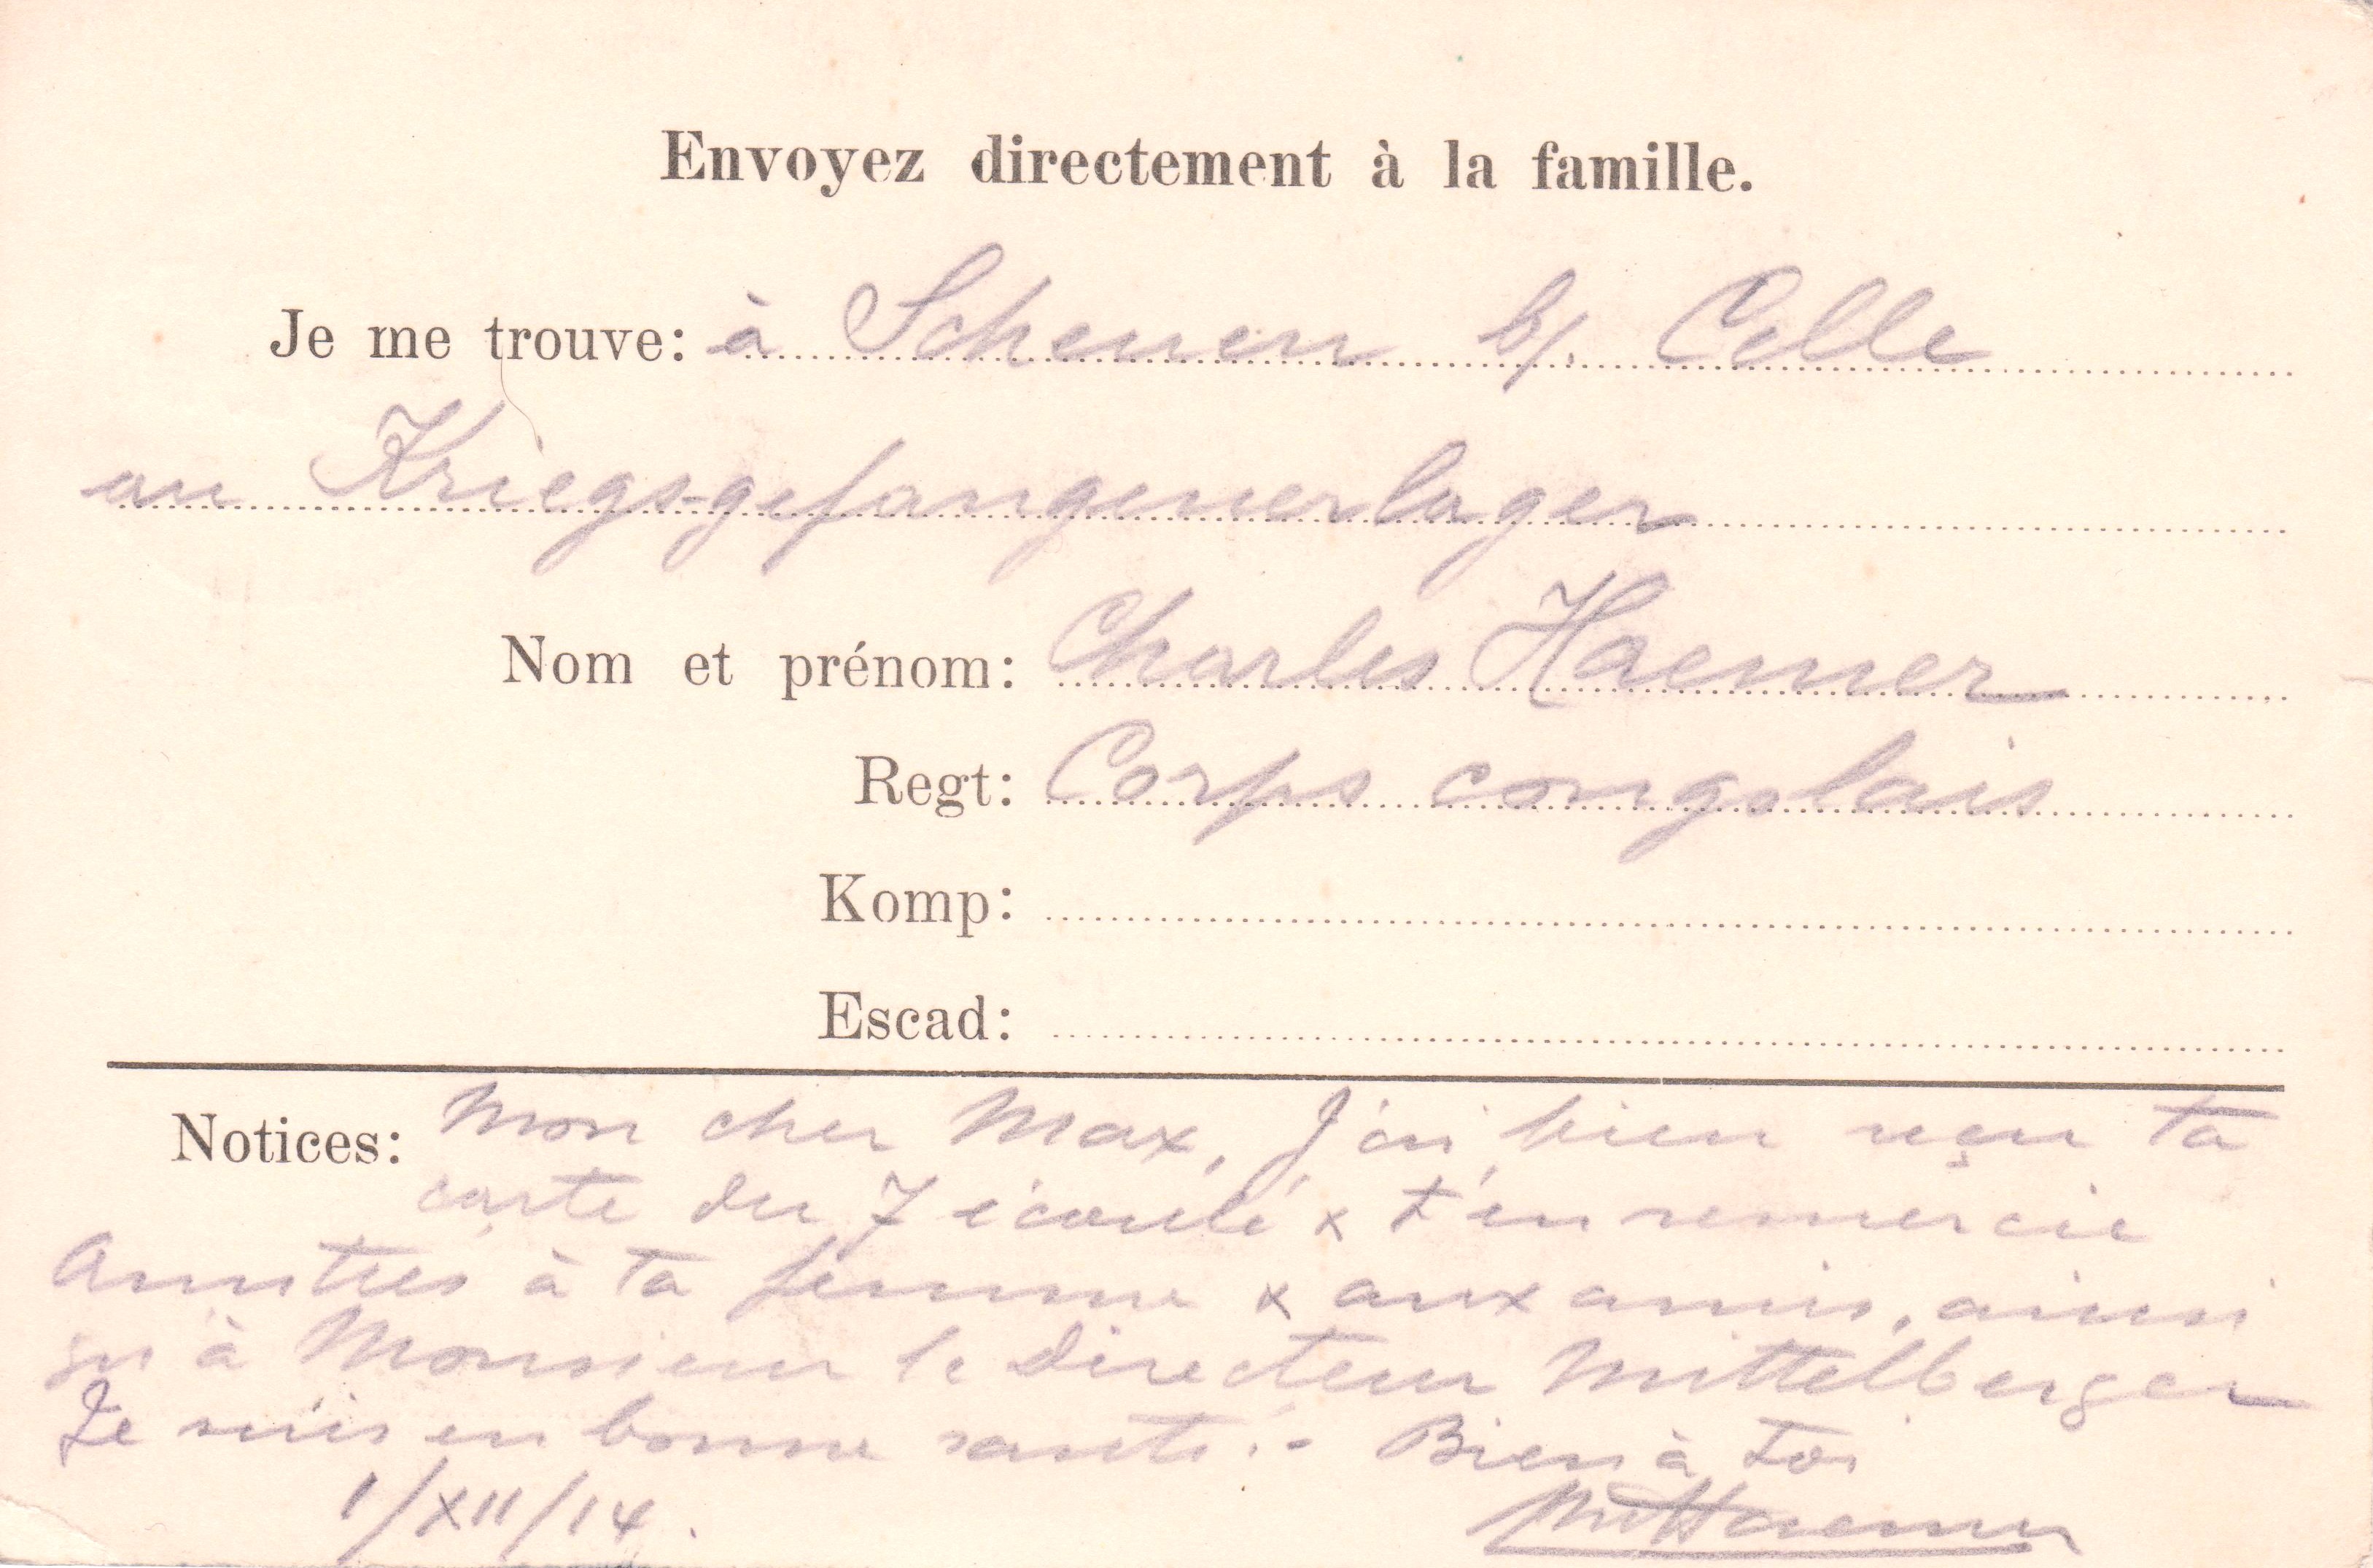 Envoyez directement à la famille.
Je me trouve: à Scheuen b/. Celle
au Kriegs-gefangenerlager
Nom et prénom: Charles Haemer
Regt: Corps congolais
Komp:
Escad:
Notices: Mon cher Max, J'ai bien reçu ta
carte du 7 écoulé & t'en remercie
Amitiés à ta femme & aux amis, ainsi
qu'à Monsieur le Directeur Mittelberger
Je suis en bonne santé. - Bien à toi
1/XII/14.
Haemer